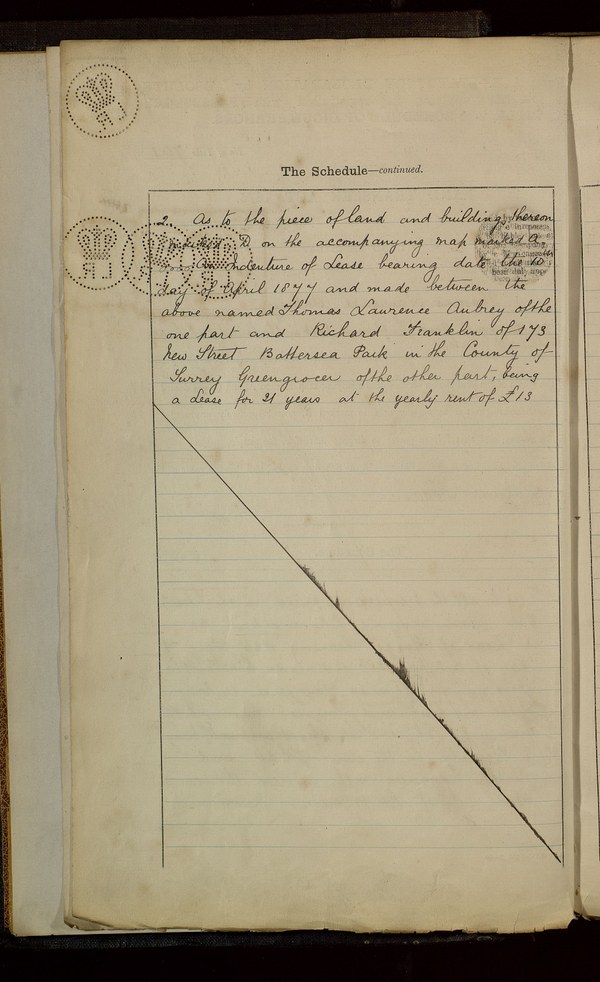 The Schedule—continued.
2. As to the piece of land and buildings thereon
on the accompanying map marked
Indenture of Lease bearing date the 10th
day of April 1877 and made between the
above named Thomas Lawrence Aubrey of the
one part and Richard Franklin of 173
New Street Battersea Park in the County of
Surrey Greengrocer of the other part, being
a Lease for 21 years at the yearly rent of £13